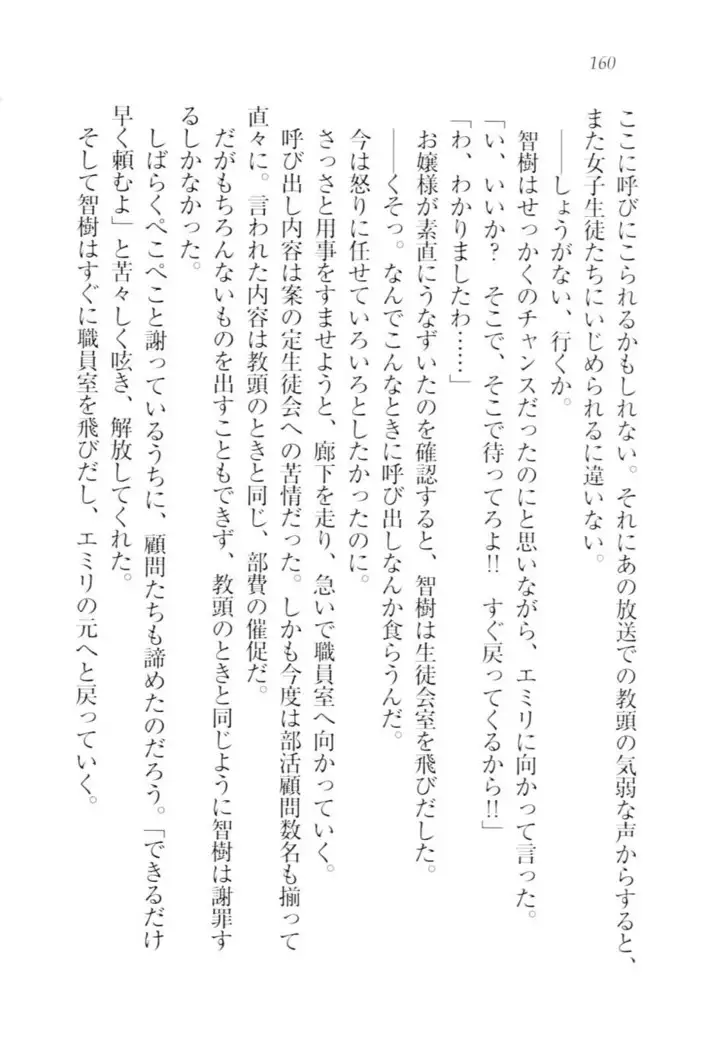 160
ここに呼びにこられるかもしれない。それにあの放送での教頭の気弱な声からすると、
また女子生徒たちにいじめられるに違いない。
――しょうがない、行くか。
智樹はせっかくのチャンスだったのにと思いながら、エミリに向かって言った。
「い、いいか？　そこで、そこで待ってろよ!!　すぐ戻ってくるから!!」
「わ、わかりましたわ……」
お嬢様が素直にうなずいたのを確認すると、智樹は生徒会室を飛びだした。
――くそっ。なんでこんなときに呼び出しなんか食らうんだ。
今は怒りに任せていろいろとしたかったのに。
さっさと用事をすませようと、廊下を走り、急いで職員室へ向かっていく。
呼び出し内容は案の定生徒会への苦情だった。しかも今度は部活顧問数名も揃って
直々に。言われた内容は教頭のときと同じ、部費の催促だ。
だがもちろんないものを出すこともできず、教頭のときと同じように智樹は謝罪す
るしかなかった。
しばらくぺこぺこと謝っているうちに、顧問たちも諦めたのだろう。「できるだけ
早く頼むよ」と苦々しく呟き、解放してくれた。
そして智樹はすぐに職員室を飛びだし、エミリの元へと戻っていく。